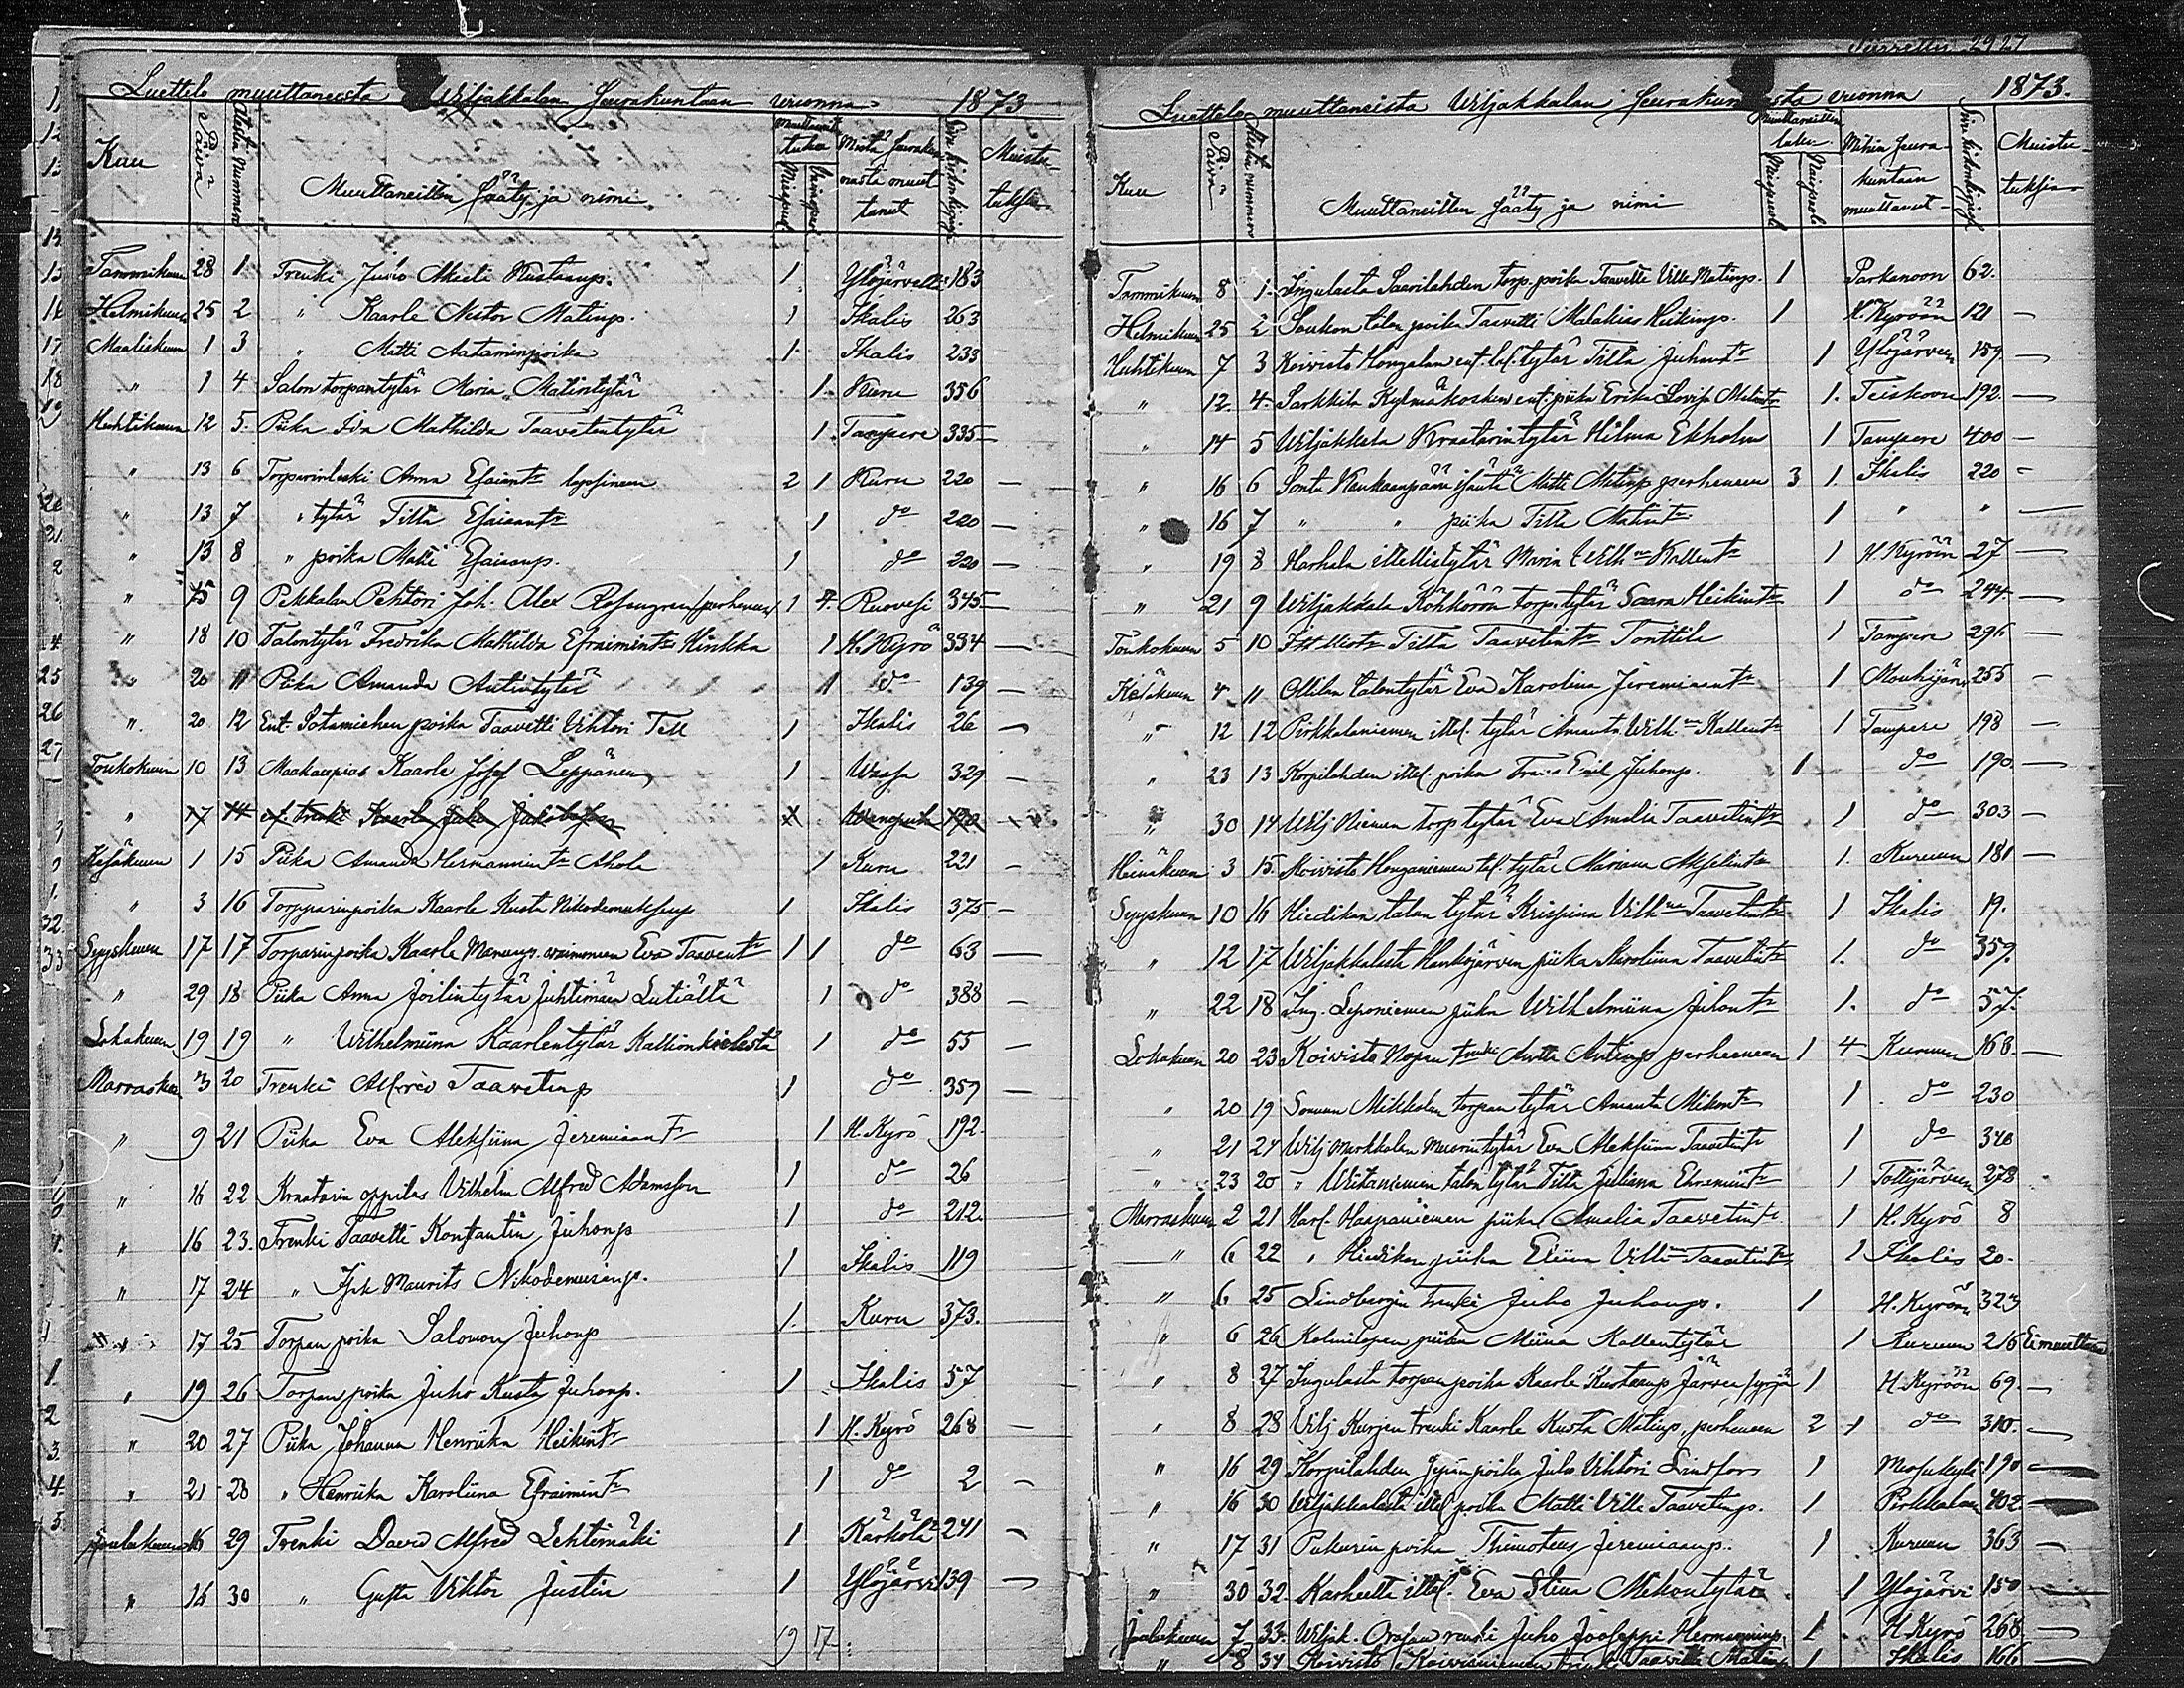 Luettelo muuttaneista Wiljakkalan Seurakuntaan vuonna 1873
Kuu Päivä Muuttaneitten Sääty ja nimi. Miespuol. Vaimopuol. Mistä Seurakunnasta muuttanut Muistutuksia
Tammikuun 28 1 Trenki Juho Matti Kustaanp. 1 Ylöjärveltä 183
Helmikuun 25 2 " Kaarle Nestor Matinp. 1 Ikalis 263
Maaliskuun 1 3 " Matti Aataminpoika 1 Ikalis 233
" 1 4 Salon torpantytär Maria Matintytär 1 Kuru 356
Huhtikuun 12 5 Piika Ida Mathilda Taavetintytär 1 Tampere 335 —
" 13 6 Torparinleski Anna Esaiant lapsineen 2 1 Kuru 220 —
" 13 7 " tytär Tilta Esaiaant 1 do 220 —
" 13 8 " poika Matti Esaiaanp. 1 do 220 —
" 15 9 Pekkalan Pehtori Joh. Alex Rosengren perheineen 1 4 Ruovesi 345 —
" 18 10 Talontytär Fredrika Mathilda Efraimint Hinkka 1 H. Kyrö 334 —
" 20 11 Piika Amanda Antintytär 1 do 139 —
" 20 12 Ent. Sotamiehen poika Taavetti Vihtori Tell 1 Ikalis 26 —
Toukokuun 10 13 Maakauppias Kaarle Josef Leppänen 1 Wasa 329 —
" 17 14
Kesäkuun 1 15 Piika Amanda Hermannint Ahola 1 Kuru 221 —
" 3 16 Torpparinpoika Kaarle Kusta Nikodemuksenp 1 Ikalis 375 —
Syyskuun 17 17 Torparinpoika Kaarle Manunp. vaimoneen Eva Taavent 1 1 do 63 —
" 29 18 Piika Anna Joilintytär Juhtimäen Lutiältä 1 do 388 —
Lokakuun 19 19 " Wilhelmiina Kaarlentytär Kallionkielestä 1 do 55 —
Marraskuu 3 20 Trenki Alfred Taavetinp 1 do 359 —
" 9 21 Piika Eva Aleksiina Jeremiaant 1 H. Kyrö 192
" 16 22 Kraatarin oppilas Vilhelm Alfred Adamsson 1 do 26
" 16 23 Trenki Taavetti Konstantin Juhonp 1 do 212
" 17 24 " Isak Maurits Nikodemusenp. 1 Ikalis 119
" 17 25 Torpan poika Salomon Juhonp 1 Kuru 373
" 19 26 Torpan poika Juho Kusta Juhonp. 1 Ikalis 57
" 20 27 Piika Johanna Henriika Heikint 1 H. Kyrö 268 —
" 21 28 " Henriika Karoliina Efraimint 1 do 2 —
Joulukuun 16 29 Trenki David Alfred Lehtimäki 1 Karköli 241
" 16 30 " Gusta Viktor Justin 1 Ylöjärvi 139 —
19 17
Luettelo muuttaneista Wiljakkalan Seurakunnasta vuonna 1873.
Kuu Päivä Muuttaneitten Sääty ja nimi Miespuol. Vaimopuol. Mihin Seurakuntaan muuttaneet Muistutuksia
Tammikuun 8 1 Ingulasta Saarilahden torp. poika Taavetti Ville Matinp. 1 Parkanoon 62.
Helmikuun 25 2 Soukon talon poika Taavetti Malakias Heikinp. 1 H. Kyröön 121 —
Huhtikuun 7 3 Koivisto Hongalan ent. tal. tytär Tilta Juhant 1 Ylöjärveen 159 —
" 12 4 Sarkkila Kylmäkosken ent. piika Erika Lovisa Matint 1 Teiskoon 192 —
" 14 5 Wiljakkala Kraatarintytär Hilma Ekholm 1 Tampere 400 —
" 16 6 Sontu Kaukaanpään isäntä Matti Matinp perheineen 3 1 Ikalis 220 —
" 16 7 " " piika Tilta Matint 1 " " —
" 19 8 Harhala itellistytär Maria Vilhna Kallent 1 H. Kyröön 27 —
" 21 9 Wiljakkala Köhkörön torp. tytär Saara Heikint 1 do 244 —
Toukokuun 5 10 Tilta Taavetint Tonttila 1 Tampere 296 —
Kesäkuun 4 11 Ollilan talontytär Eva Karolina Jeremiaant 1 Mouhijärvi 255 —
" 12 12 Pirkkalaniemen itel. tytär Amanta Wilhna Kallent 1 Tampere 198 —
" 23 13 Korpilahden itel. poika Frans Emil Juhonp. 1 do 190 —
" 30 14 Wilj Niemen torp tytär Eva Amalia Taavetint 1 do 303 —
Heinäkuun 3 15 Koivisto Honganiemen tal. tytär Mariana Akselint 1 Kuruun 181 —
Syyskuun 10 16 Hiedikan talon tytär Krispina Vilhna Taavetint 1 Ikalis 19.
" 12 17 Wiljakkalasta Hankijärven piika Karoliina Taavetint 1 do 359
" 22 18 Ing. Leponiemen piika Wilhelmiina Juhont 1 do 57.
Lokakuun 20 23 Koivisto Nopen trenki Antti Antinp perheineen 1 4 Kuruun 168 —
" 20 19 Mikkolan torpan tytär Amanta Mikont 1 do 230
" 21 24 Wilj Markkolan Muorintytär Eva Aleksiina Taavetint 1 do 348
" 23 20 " talon tytär Tilta Juliana 1 Tottijärveen 278
Marraskuun 2 21 Harh. Haapaniemen piika Amalia Taavetint 1 H. Kyrö 8
" 6 22 " Hiedikan piika Eliina Vilhna Taavetint 1 Ikalis 20.
" 6 25 Lindbergin trenki Juho Juhonp. 1 H. Kyröön 323
" 6 26 Kolmilopen piika Miina Kallentytär 1 Kuruun 216 Ei muuttanut
" 8 27 Ingulasta torpan poika Kaarle Kustaanp Järven 1 H. Kyröön 69 —
" 8 28 Vilj Kurjen trenki Kaarle Kusta Matinp. perheineen 2 1 do 310. —
" 16 29 Korpilahden poika Juho Vihtori Lindfors 1 Messukylä 190 —
" 16 30 Wiljakkalasta itel. poika Matti Ville Taavetinp. 1 Pirkkalaan 402 —
" 17 31 Pukurin poika Thimoteus Jeremiaanp. 1 Kuruun 363 —
" 30 32 Karheelta ittel. Eva Stina Mikontytär 1 Ylöjärvi 150 —
Joulukuun 7 33 Wiljak. renki Juho Jooseppi Hermanninp. 1 H Kyrö 268 —
" 8 34 Koivisto Koivuniemen trenki Taavetti Matinp 1 Ikalis 166 —